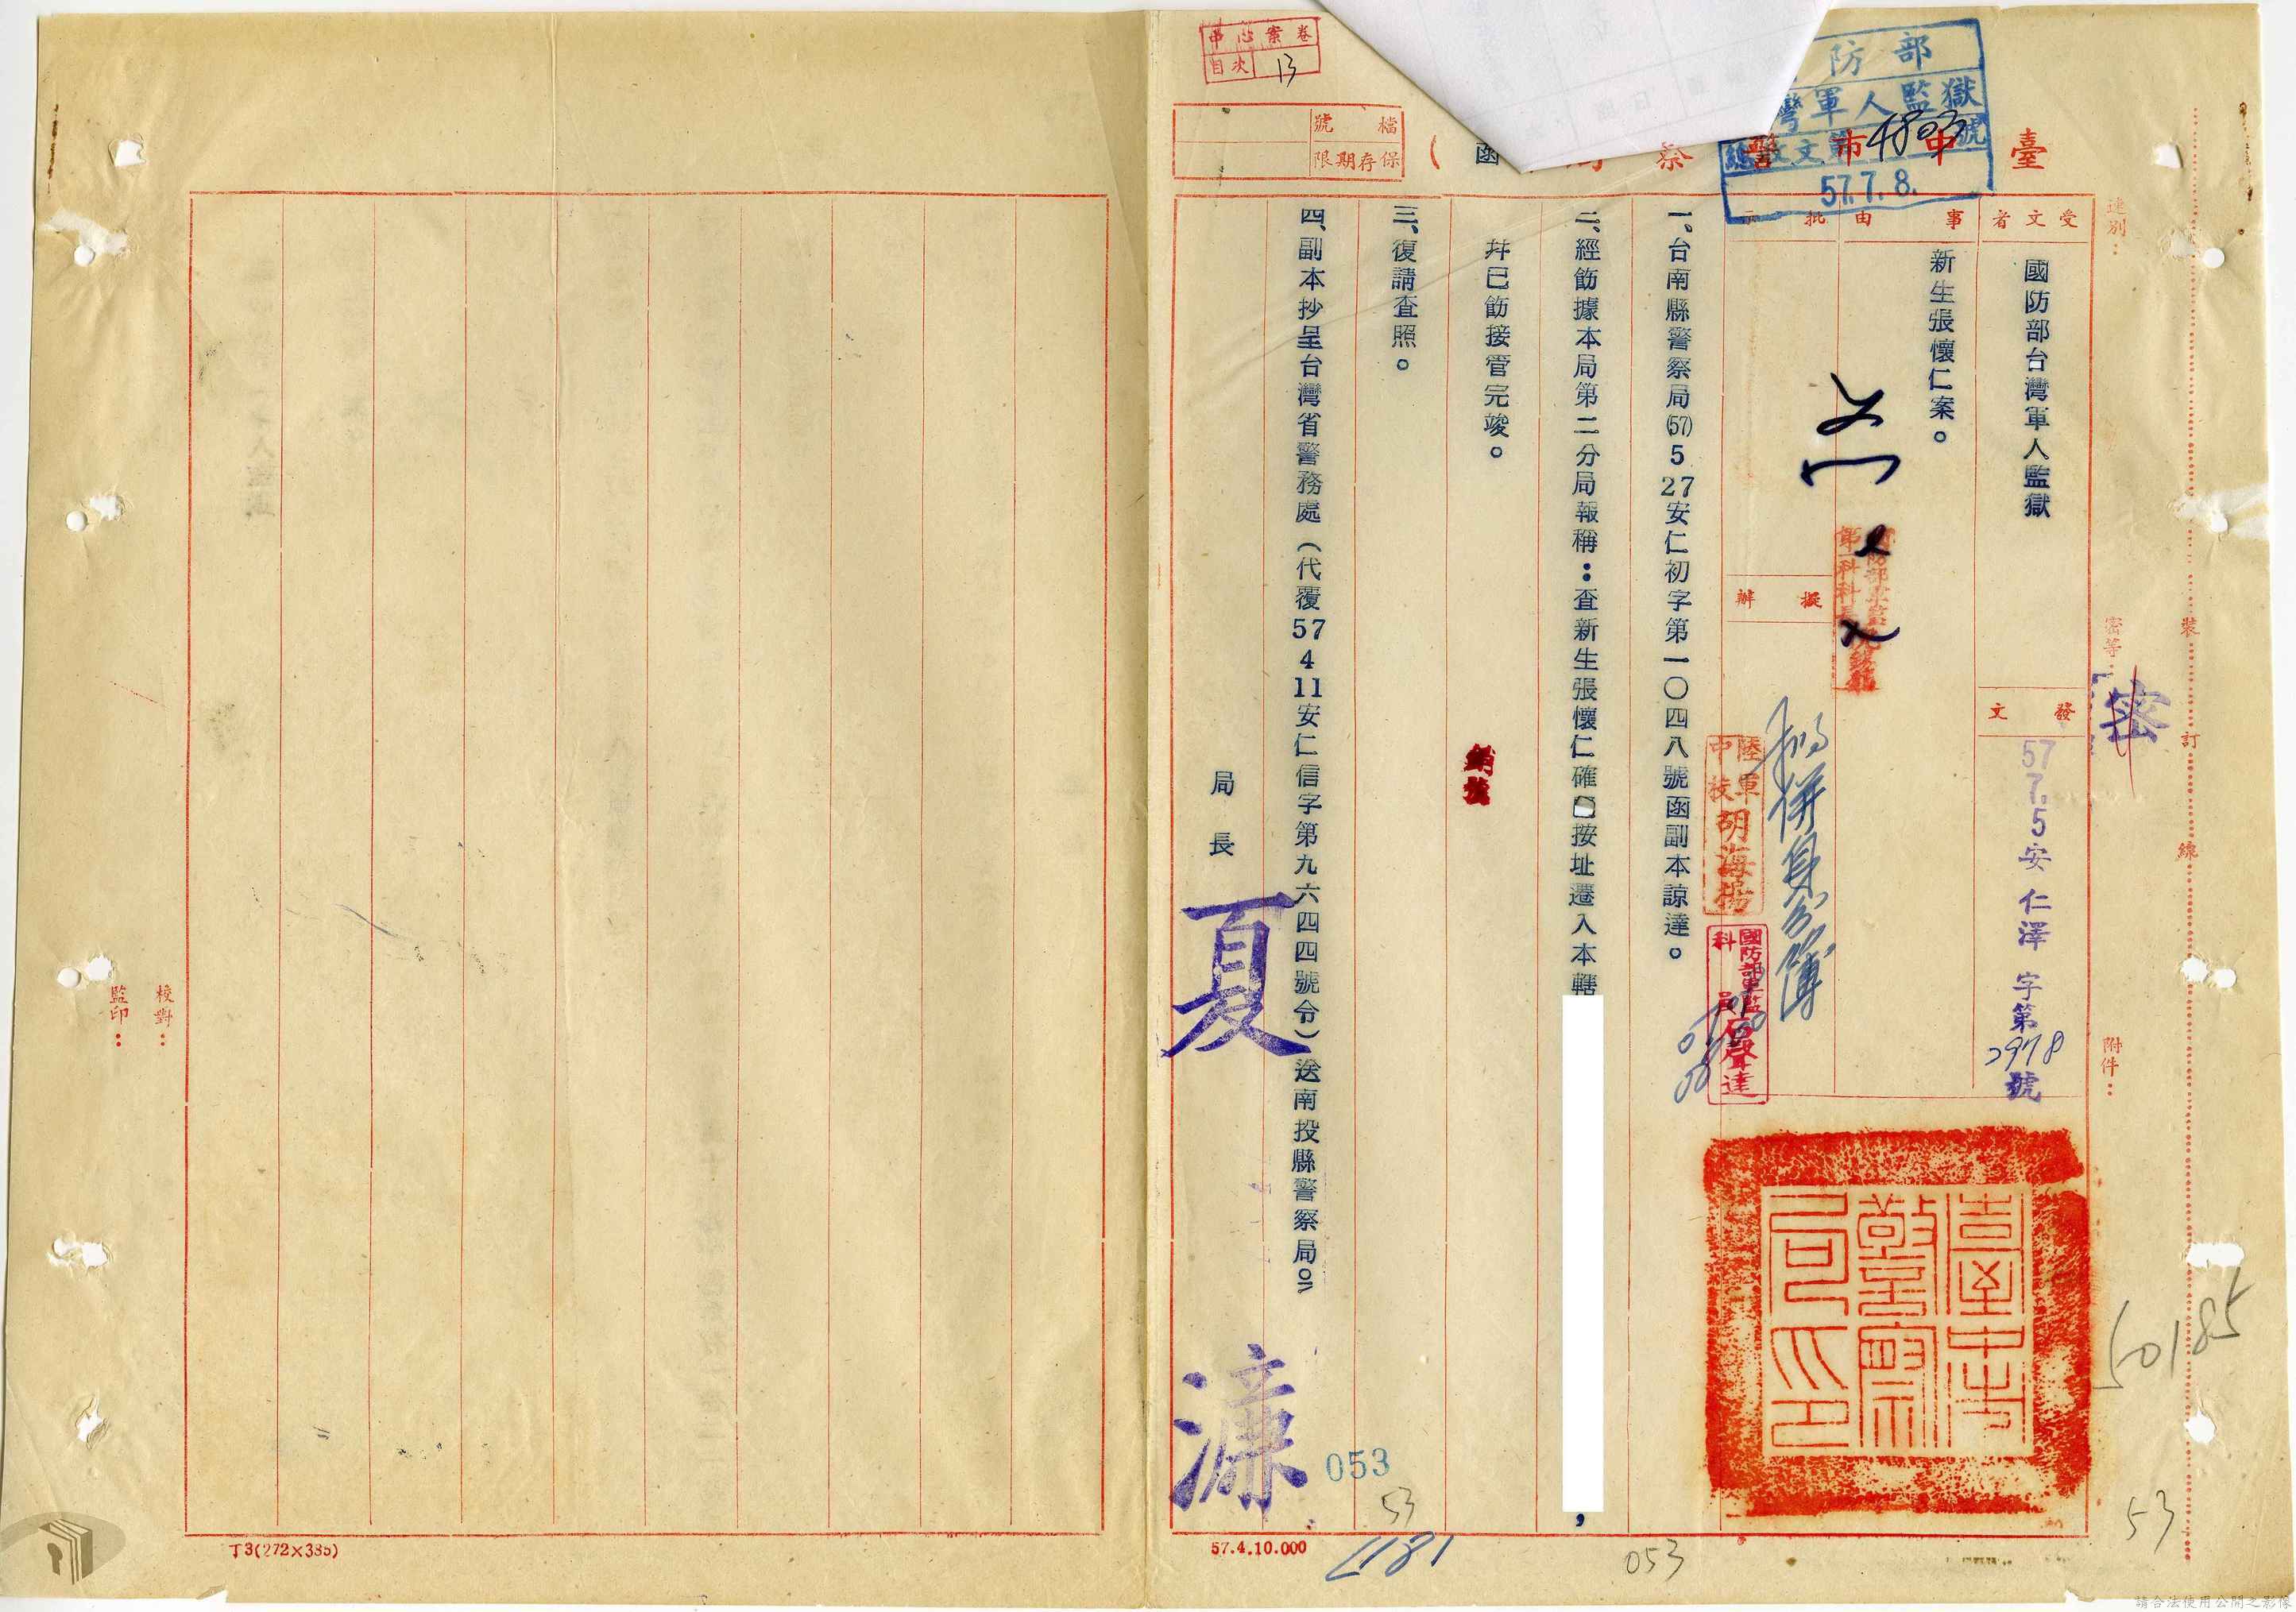 中心案卷
目次 13
檔號
保存期限
臺中市警察局(函
防部
灣軍人監獄
總收文第4803號
57.7.8.
受文者
國防部台灣軍人監獄
事由
新生張懷仁案。
批示
擬辦
發文
57 7.5安仁澤字第2978號
速別：
密等：
密
附件：
裝訂線
陸軍中校胡海揚
一、台南縣警察局(57)5 27安仁初字第一〇四八號函副本諒達。
二、經飭據本局第二分局報稱：查新生張懷仁確已按址遷入本轄
，
幷已飭接管完竣。
三、復請查照。
四、副本抄呈台灣省警務處（代覆57 4 11安仁信字第九六四四號令）送南投縣警察局。
銷號
局長 夏濂
臺中市警察局印
校對：
監印：
053
53
1181
053
53
50185
57.4.10.000
丁3(272×385)
請合法使用公開之影像